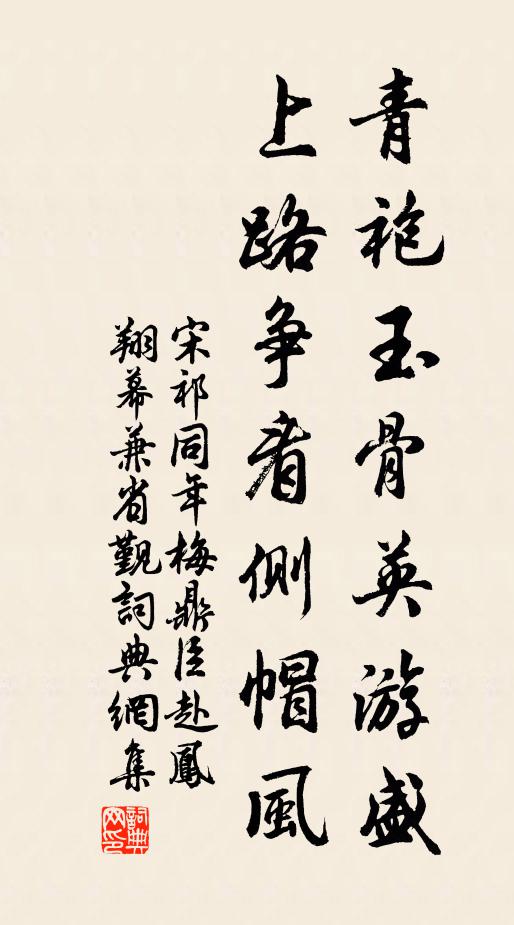 青袍玉骨英游盛
上路争看側帽風
宋祁同年梅鼎臣赴鳳
翔幕兼省覲詞典網集
詞典网印